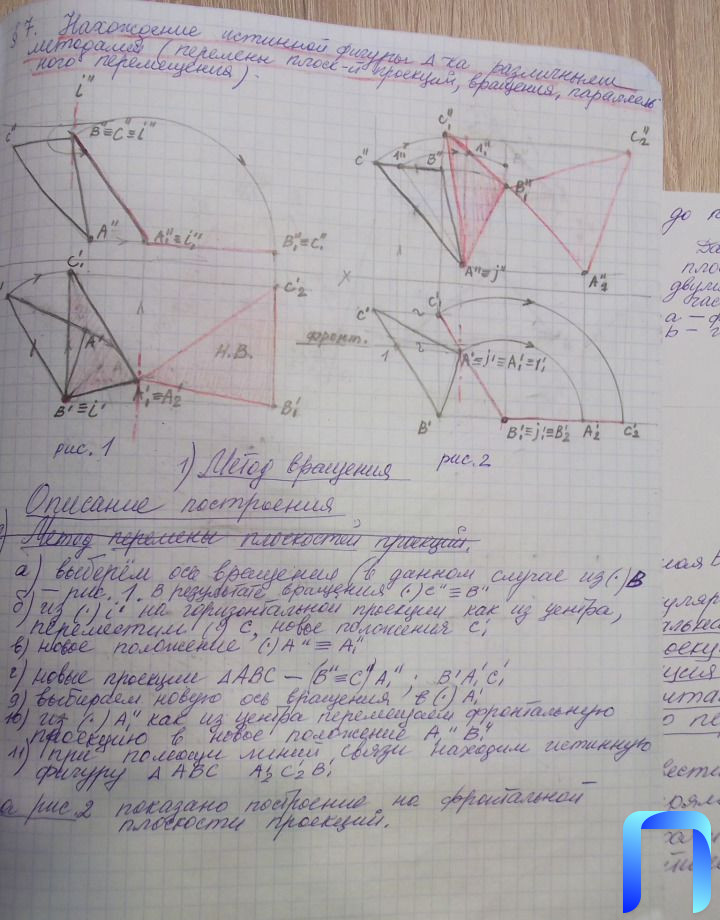 § 7. Нахождение истинной фигуры Δ-ка различными
методами (перемены плоск-й проекций, вращения, параллель
ного перемещения).
i"
C"
B"≡C"≡i"
A"
A₁"≡i₁"
B₁"≡C₁"
C₁'
C₂'
A'
Н.В.
B'≡i'
A₁'≡A₂'
B₁'
рис. 1
C₁"
C₂"
C"
1"
B"
1₁"
B₁"
A"≡j"
A₂"
X
фронт.
C'
C₁'
2
2
1
A'≡j'≡A₁'≡1₁'
B'
B₁'≡j₁'≡B₂'
A₂'
C₂'
рис. 2
1) Метод вращения
Описание построения
Метод перемены плоскостей проекций.
а) выберём ось вращения (в данном случае из (·) B
– рис. 1. В результате вращения (·) C" ≡ B"
б) из (·) i' на горизонтальной проекции как из центра,
переместим (·) C, новое положения C₁'
в) новое положение (·) A" ≡ A₁"
г) новые проекции ΔABC – (B"≡C)"A₁"; B'A₁'C₁'
д) выбираем новую ось вращения в (·) A₁'
10) из (·) A" как из центра перемещаем фронтальную
проекцию в новое положение A₁" B₁"
11) при помощи линии связи находим истинную
фигуру Δ ABC A₂' C₂' B₁'
а рис. 2 показано построение на фронтальной
плоскости проекций.
до
Да
плос
двум
час
a – ф
b – г